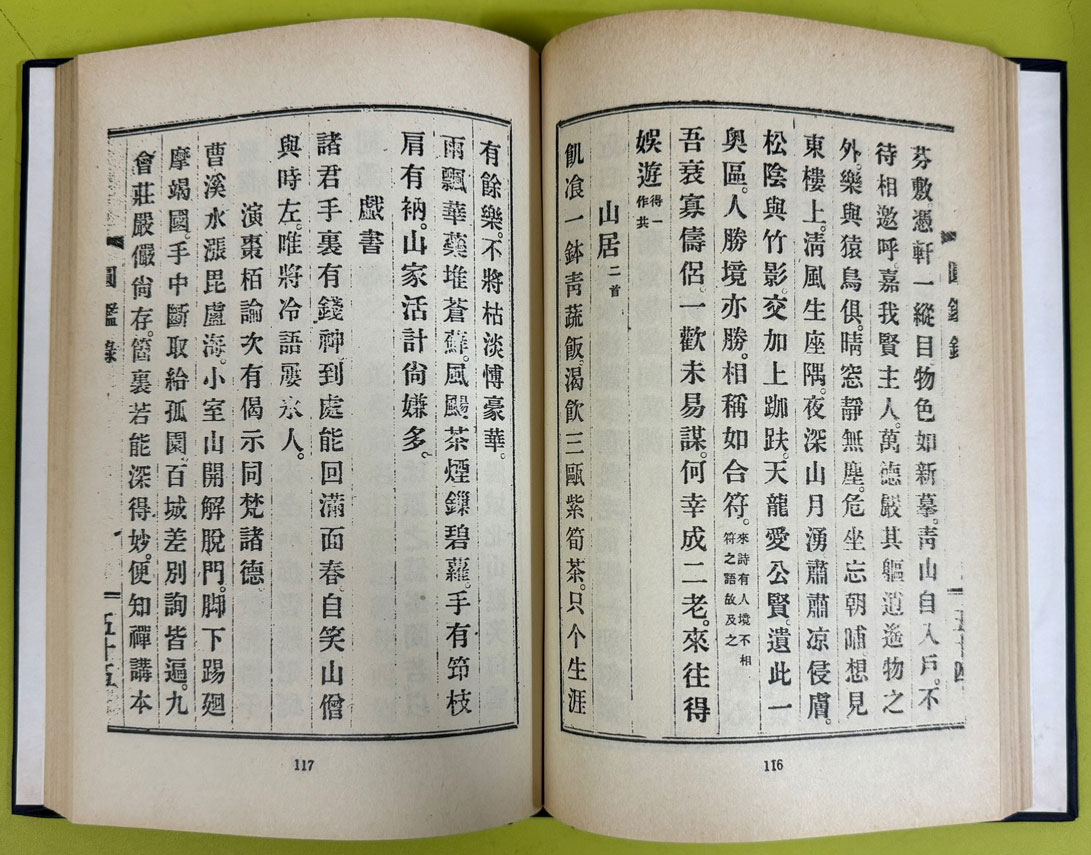 圓鑑錄
五十四
芬敷。憑軒一縱目物色如新摹。靑山自入戶。不
待相邀呼嘉我賢主人。萬德嚴其軀逍遙物之
外。樂與猿鳥俱。晴窓靜無塵。危坐忘朝晡想見
東樓上。淸風生座隅。夜深山月湧肅肅凉侵膚。
松陰與竹影。交加上跏趺。天龍愛公賢。遺此一
奧區。人勝境亦勝。相稱如合符。來詩有人境不相
符之語故及之
吾衰寡儔侶。一歡未易謀。何幸成二老。來往得
娛遊得一
作共
山居二首
飢飡一鉢靑蔬飯。渴飮三甌紫筍茶。只个生涯
116
有餘樂。不將枯淡博豪華。
雨飄華蘂堆蒼蘚。風颺茶煙鏁碧蘿。手有筇枝
肩有衲。山家活計尙嫌多。
戲書
諸君手裏有錢神。到處能回滿面春。自笑山僧
與時左。唯將冷語屢氷人。
演棗栢論次有偈示同梵諸德
曹溪水漲毘盧海。小室山開解脫門。脚下踢廻
摩竭國。手中斷取給孤園。百城差別詢皆遍。九
會莊嚴儼尙存。箇裏若能深得妙。便知禪講本
圓鑑錄
五十五
117